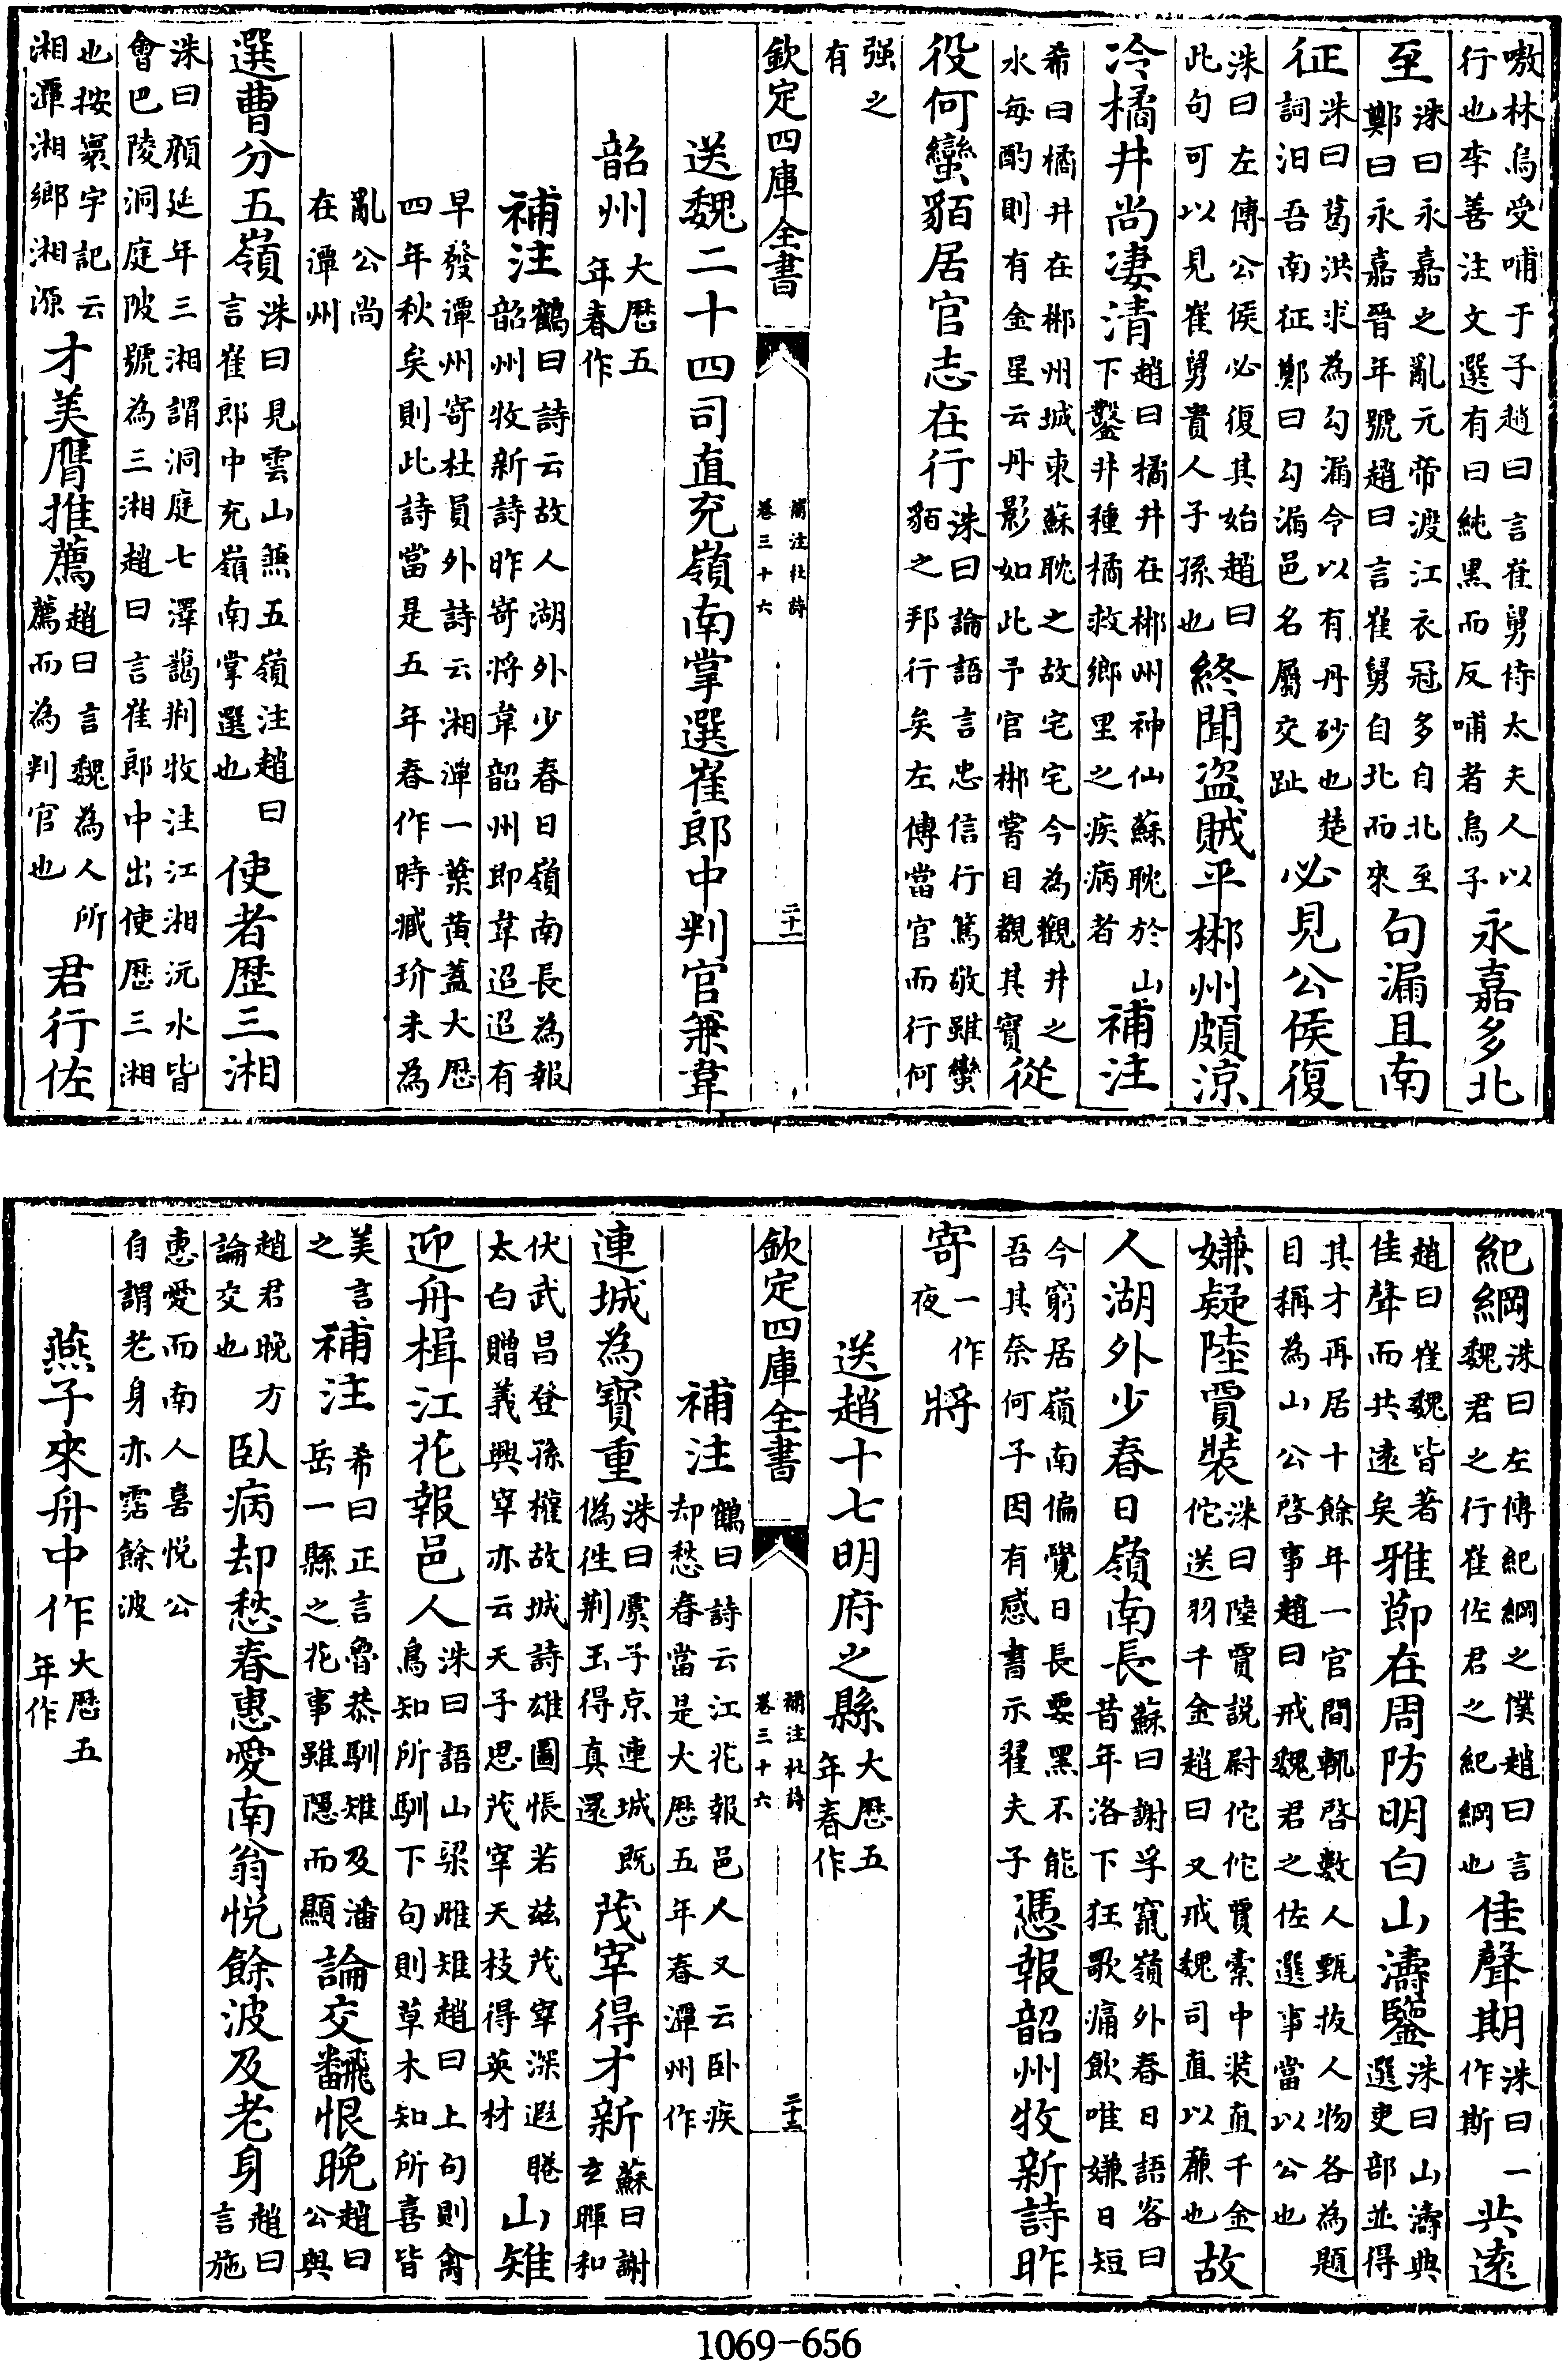 嗷林烏受哺于子趙曰言崔舅侍太夫人以行也李善注文選有曰純黑而反哺者烏子永嘉多北
至洙曰永嘉之亂元帝渡江衣冠多自北至鄭曰永嘉晉年號趙曰言崔舅自北而來句漏且南
征洙曰葛洪求為勾漏令以有丹砂也楚詞汨吾南征鄭曰勾漏邑名屬交趾必見公侯復
洙曰左傳公侯必復其始趙曰此句可以見崔舅貴人子孫也終聞盜賊平郴州頗涼
冷橘井尚凄清趙曰橘井在郴州神仙蘇耽於山下鑿井種橘救鄉里之疾病者補注
希曰橘井在郴州城東蘇耽之故宅宅今為觀井之水每酌則有金星云丹影如此予官郴嘗目覩其實從
役何蠻貊居官志在行洙曰論語言忠信行篤敬雖蠻貊之邦行矣左傳當官而行何
强之有
欽定四庫全書
補注杜詩卷三十六
二十一
送魏二十四司直充嶺南掌選崔郎中判官兼韋
韶州大歷五年春作
補注鶴曰詩云故人湖外少春日嶺南長為報韶州牧新詩昨寄將韋韶州即韋迢迢有
早發潭州寄杜員外詩云湘潭一葉黄蓋大歷四年秋矣則此詩當是五年春作時臧玠未為
亂公尚在潭州
選曹分五嶺洙曰見雲山兼五嶺注趙曰言崔郎中充嶺南掌選也使者歷三湘
洙曰顔延年三湘謂洞庭七澤藹荆牧注江湘沅水皆會巴陵洞庭陂號為三湘趙曰言崔郎中出使歷三湘
也按寰宇記云湘潭湘鄉湘源才美膺推薦趙曰言魏為人所薦而為判官也君行佐
紀綱洙曰左傳紀綱之僕趙曰言魏君之行崔佐君之紀綱也佳聲期洙曰一作斯共遠
趙曰崔魏皆著佳聲而共遠矣雅節在周防明白山濤鑒洙曰山濤典選吏部並得
其才再居十餘年一官間輒啓數人甄拔人物各為題目稱為山公啓事趙曰戒魏君之佐選事當以公也
嫌疑陸賈裝洙曰陸賈説尉佗佗賈橐中裝直千金佗送羽千金趙曰又戒魏司直以亷也故
人湖外少春日嶺南長蘇曰謝孚竄嶺外春日語客曰昔年洛下狂歌痛飲唯嫌日短
今窮居嶺南偏覺日長要黑不能吾其奈何子因有感書示翟夫子憑報韶州牧新詩昨
寄一作夜將
送趙十七明府之縣大歷五年春作
欽定四庫全書
補注杜詩卷三十六
二十二
補注鶴曰詩云江花報邑人又云卧疾却愁春當是大歷五年春潭州作
連城為寶重洙曰虞子京連城既偽徃荆玉得真還茂宰得才新蘇曰謝玄暉和
伏武昌登孫權故城詩雄圖悵若兹茂宰深遐睠太白贈義興宰亦云天子思茂宰天枝得英材山雉
迎舟楫江花報邑人洙曰語山梁雌雉趙曰上句則禽鳥知所馴下句則草木知所喜皆
美言之補注希曰正言魯恭馴雉及潘岳一縣之花事雖隱而顯論交飜恨晚趙曰公與
趙君晚方論交也臥病却愁春惠愛南翁悅餘波及老身趙曰言施
惠愛而南人喜悅公自謂老身亦霑餘波
燕子來舟中作大歷五年作
1069-656